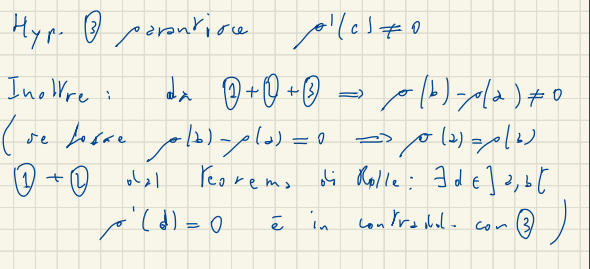 Hyp. ③ garantisce g'(c) ≠ 0
Inoltre : da ①+②+③ ⟹ g(b)-g(a) ≠ 0
(se fosse g(b)-g(a) = 0 ⟹ g(a) = g(b)
①+② dal teorema di Rolle: ∃ d ∈ ]a,b[
g'(d) = 0 è in contradd. con ③)